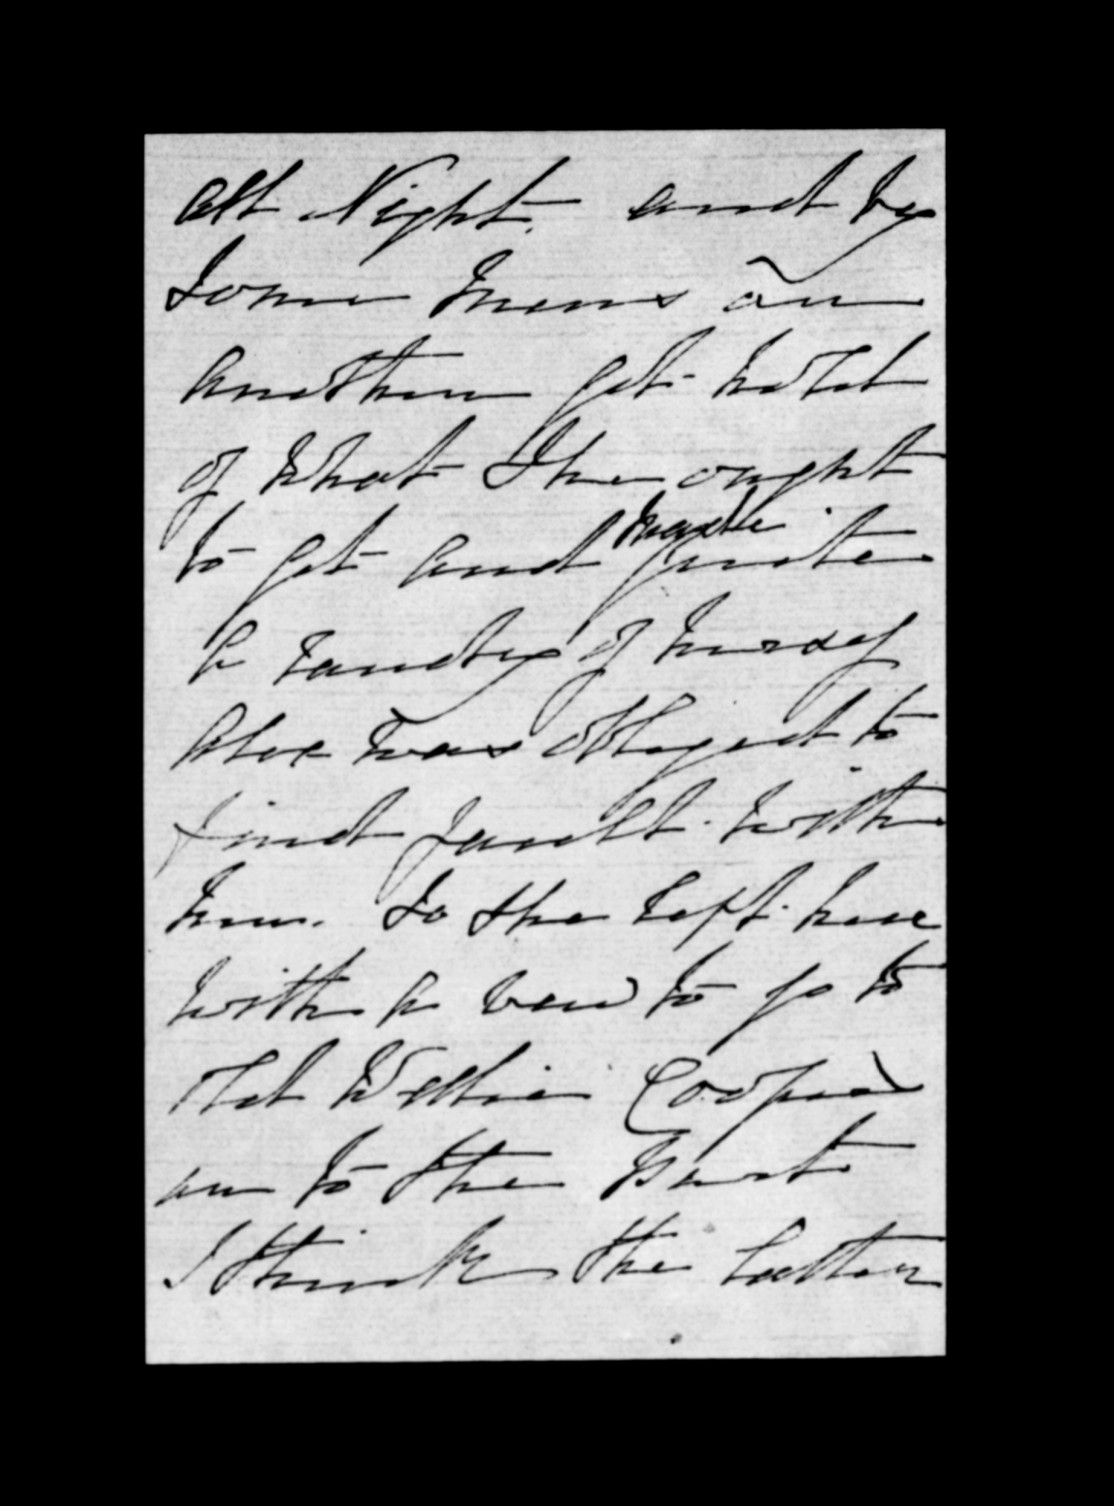 all Night. and by
some means or
another get hold
of what She ought
to get and made quite
a
was obliged to
find fault with
him. So she left here
with a view to go to
old Willie Cooper
or to the
I think the latter